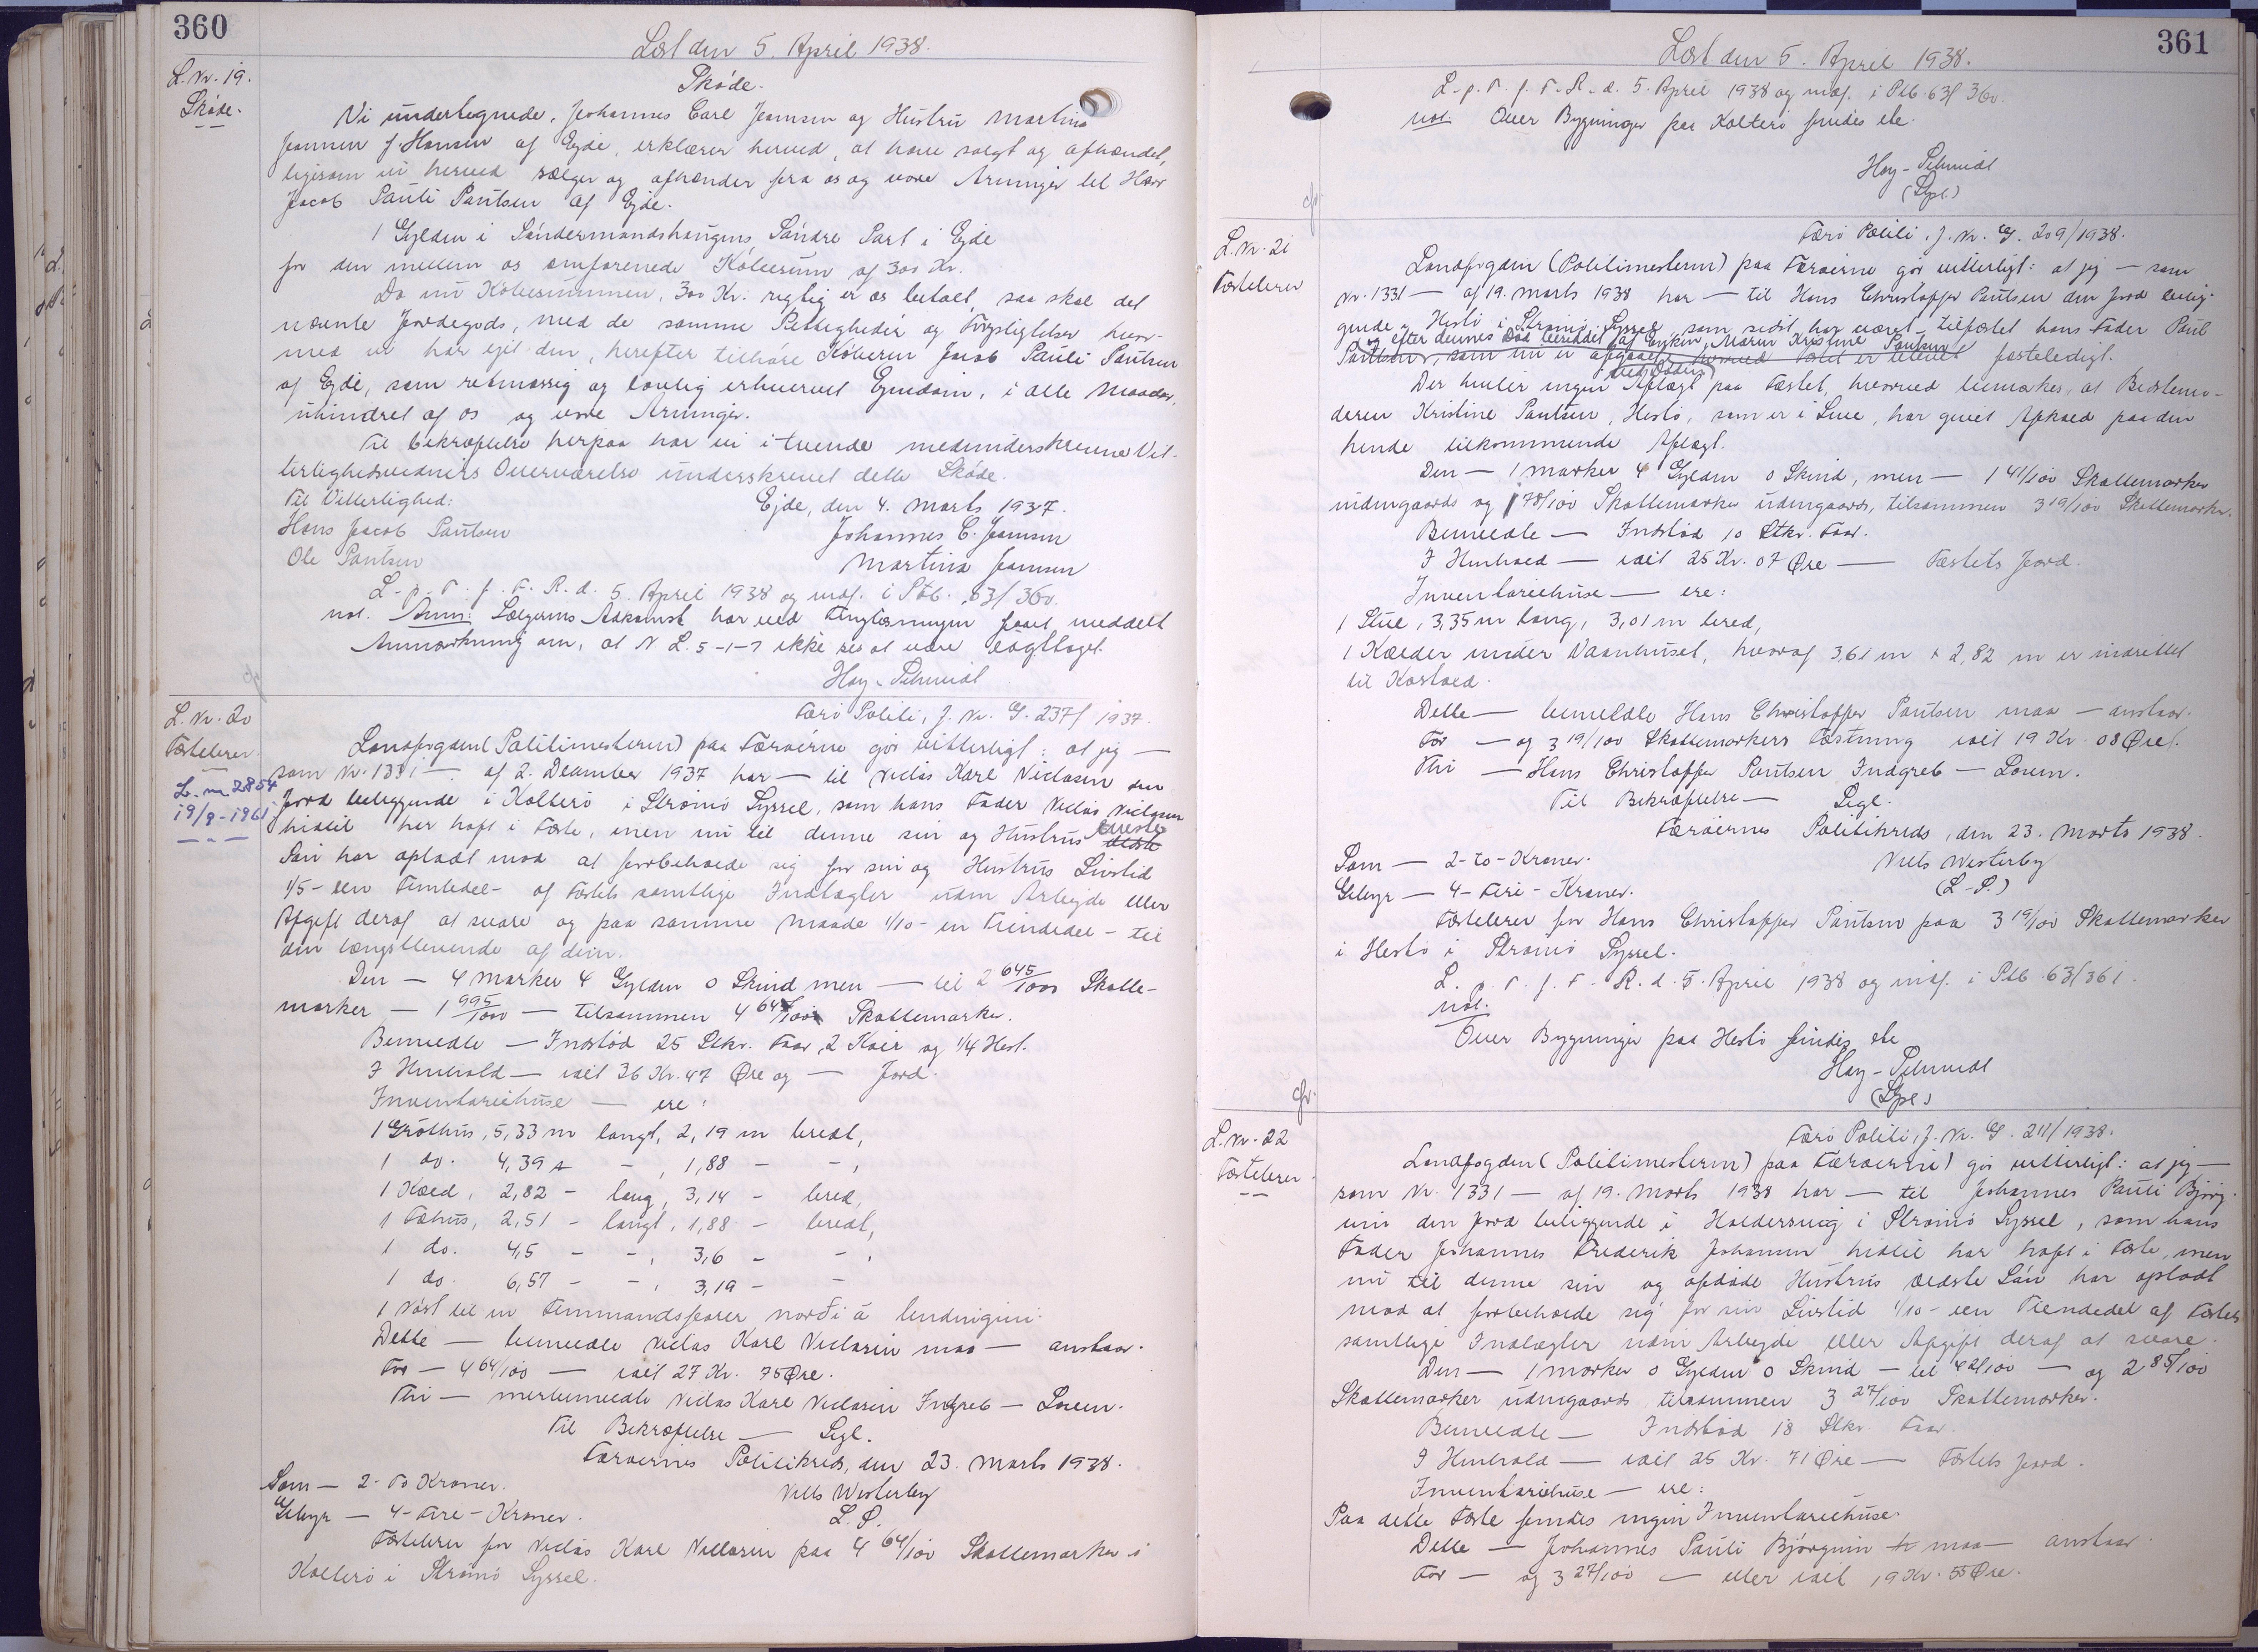 360
Læst den 5. April 1938.
L. Nr. 19.
Skøde.
Skøde.
Vi undertegnede, Johannes Carl Joensen og Hustru Martina
Joensen f. Hansen af Ejde, erklærer herved, at have solgt og afhændet,
ligesom vi herved sælger og afhænder fra os og vore Arvinger til Herr
Jacob Pauli Poulsen af Ejde.
1 Gylden i Søndermandshaugens, Søndre Part i Ejde
for den mellem os omforenede Købesum af 300 Kr.
Da nu Købesummen, 300 Kr. rigtig er os betalt, saa skal det
nævnte Jordegods, med de samme Rettigheder og Forpligtelser hvor-
med vi har ejet den, herefter tilhøre Køberen Jacob Pauli Poulsen
af Ejde, som retmæssig og lovlig erhvervet Ejendom, i alle Maader,
uhindret af os og vore Arvinger.
Til Bekræftelse herpaa har vi i tvende medunderskrevne Vit-
terlighedsvidners Overværelse underskrevet dette Skøde.
Til Vitterlighed:
Ejde, den 4. Marts 1937.
Hans Jacob Poulsen
Johannes C. Joensen
Ole Poulsen
Martina Joensen
L. p. T. f. F. R. d. 5. April 1938 og indf. i Ptb. 63/ 360.
not. Anm: Sælgerens Adkomst har ved Tinglæsningen faaet meddelt
Anmærkning om, at N. L. 5-1-7 ikke ses at være iagttaget.
Høy-Schmidt
L. Nr. 20
Fæstebrev.
L. nr. 2854
19/9-1961
Færø Politi, J. Nr. G. 237/ 1937.
Landfogden (Politimesteren) paa Færøerne gør vitterligt: at jeg —
som Nr. 1331 — af 2. December 1937 har — til Niclas Karl Niclasen den
Jord beliggende i Kolterø i Strømø Syssel, som hans Fader Niclas Niclasen
hidtil har haft i Fæste, men nu til denne sin og Hustrus eneste ældste
Søn har opladt mod at forbeholde sig for sin og Hustrus Livstid
1/5 - een Femtedel - af Fæstets samtlige Indtægter uden Arbejde eller
Afgift deraf at svare og paa samme Maade 1/10 - en Tiendedel - til
den længstlevende af dem.
Den — 4 Marker 4 Gylden 0 Skind men — til 2 645/1000 Skatte-
marker — 1 995/1000 — tilsammen 4 64/100 Skattemarker.
Bemeldte — Indstød 25 Stkr. Faar, 2 Køer og 1/4 Hest.
I Henhold — ialt 36 Kr. 47 Øre og — Jord.
Inventariehuse — ere:
1 Gróthus, 5,33 m langt, 2,19 m bredt,
1 do. 4,39 - - , 1,88 - - ,
1 Kæld, 2,82 - lang, 3,14 - bred,
1 Fæhus, 2,51 - langt, 1,88 - bredt,
1 do. 4,5 - - , 3,6 - - ,
1 do. 6,57 - - , 3,19 - -
1 Nøst til en Femmandsfarer norði á lendingini.
Dette — bemeldte Niclas Karl Niclasen maa — anstaar.
For — 4 64/100 — ialt 27 Kr. 75 Øre.
Thi — merbemeldte Niclas Karl Niclasen Indgreb — Loven.
Til Bekræftelse — Segl.
Færøernes Politikreds, den 23. Marts 1938.
Som — 2 - To Kroner.
Niels Westerby
Gebyr — 4 - Fire - Kroner.
L. S.
Fæstebrev for Niclas Karl Niclasen paa 4 64/100 Skattemarker i
Kolterø i Strømø Syssel.
361
Læst den 5. April 1938.
L. p. T. f. F. R. d. 5. April 1938 og indf. i Ptb. 63/ 360.
not. Over Bygninger paa Kolterø findes ete.
Høy-Schmidt
L. Nr. 21
Fæstebrev
Færø Politi, J. Nr. G. 209/1938.
Landfogden (Politimesteren) paa Færøerne gør vitterligt: at jeg — som
Nr. 1331 — af 19. Marts 1938 har — til Hans Christoffer Poulsen den Jord belig-
gende i Hestø i Strømø Syssel, som sidst har været tilfæstet hans Fader Poul
og efter dennes Død besiddet af Enken, Maren Kristine Poulsen
Poulsen, som nu er afgaaet ved Døden, hvorved Fæstet er blevet fæsteledigt.
Der hviler ingen Aftægt paa Fæstet, hvorved bemærkes, at Bedstemo-
deren Kristine Poulsen, Hestø, som er i Live, har givet Afkald paa den
hende tilkommende Aftægt.
Den — 1 Marker 4 Gylden 0 Skind, men — 1 41/100 Skattemarker
indengaards og 1 78/100 Skattemarker udengaards, tilsammen 3 19/100 Skattemarker.
Bemeldte — Indstød 10 Stkr. Faar.
I Henhold — ialt 25 Kr. 07 Øre — Fæstets Jord.
Inventariehuse — ere:
1 Stue, 3,35 m lang, 3,01 m bred,
1 Kælder under Vaanhuset, hvoraf 3,61 m x 2,82 m er indrettet
til Kostald.
Dette — bemeldte Hans Christoffer Poulsen maa — anstaar.
For — og 3 19/100 Skattemarkers Fæstning ialt 19 Kr. 08 Øre.
Thi — Hans Christoffer Poulsen Indgreb — Loven.
Til Bekræftelse — Segl.
Færøernes Politikreds, den 23. Marts 1938.
Som — 2 - to - Kroner.
Niels Westerby
Gebyr — 4 - Fire - Kroner.
(L. S.)
Fæstebrev for Hans Christoffer Poulsen paa 3 19/100 Skattemarker
i Hestø i Strømø Syssel.
L. p. T. f. F. R. d. 5. April 1938 og indf. i Ptb. 63/361.
not.
Over Bygninger paa Hestø findes ete
Høy-Schmidt
L. Nr. 22
Fæstebrev.
Færø Politi, J. Nr. G. 211/1938.
Landfogden (Politimesteren) paa Færøerne) gør vitterligt: at jeg —
som Nr. 1331 — af 19. Marts 1938 har — til Johannes Pauli Bjørg-
uin den Jord beliggende i Haldersvig i Strømø Syssel, som hans
Fader Johannes Frederik Johansen hidtil har haft i Fæste, men
nu til denne sin og afdøde Hustrus ældste Søn har opladt
mod at forbeholde sig for sin Livstid 1/10 - een Tiendedel af Fæstets
samtlige Indtægter uden Arbejde eller Afgift deraf at svare.
Den — 1 Marker 0 Gylden 0 Skind — til 42/100 — og 2 85/100
Skattemarker udengaards tilsammen 3 27/100 Skattemarker.
Bemeldte — Indstød 18 Stkr. Faar.
I Henhold — ialt 25 Kr. 71 Øre — Fæstets Jord.
Inventariehuse — ere:
Paa dette Fæste findes ingen Inventariehuse.
Dette — Johannes Pauli Bjørguin maa — anstaar.
For — og 3 27/100 — eller ialt 19 Kr. 55 Øre.